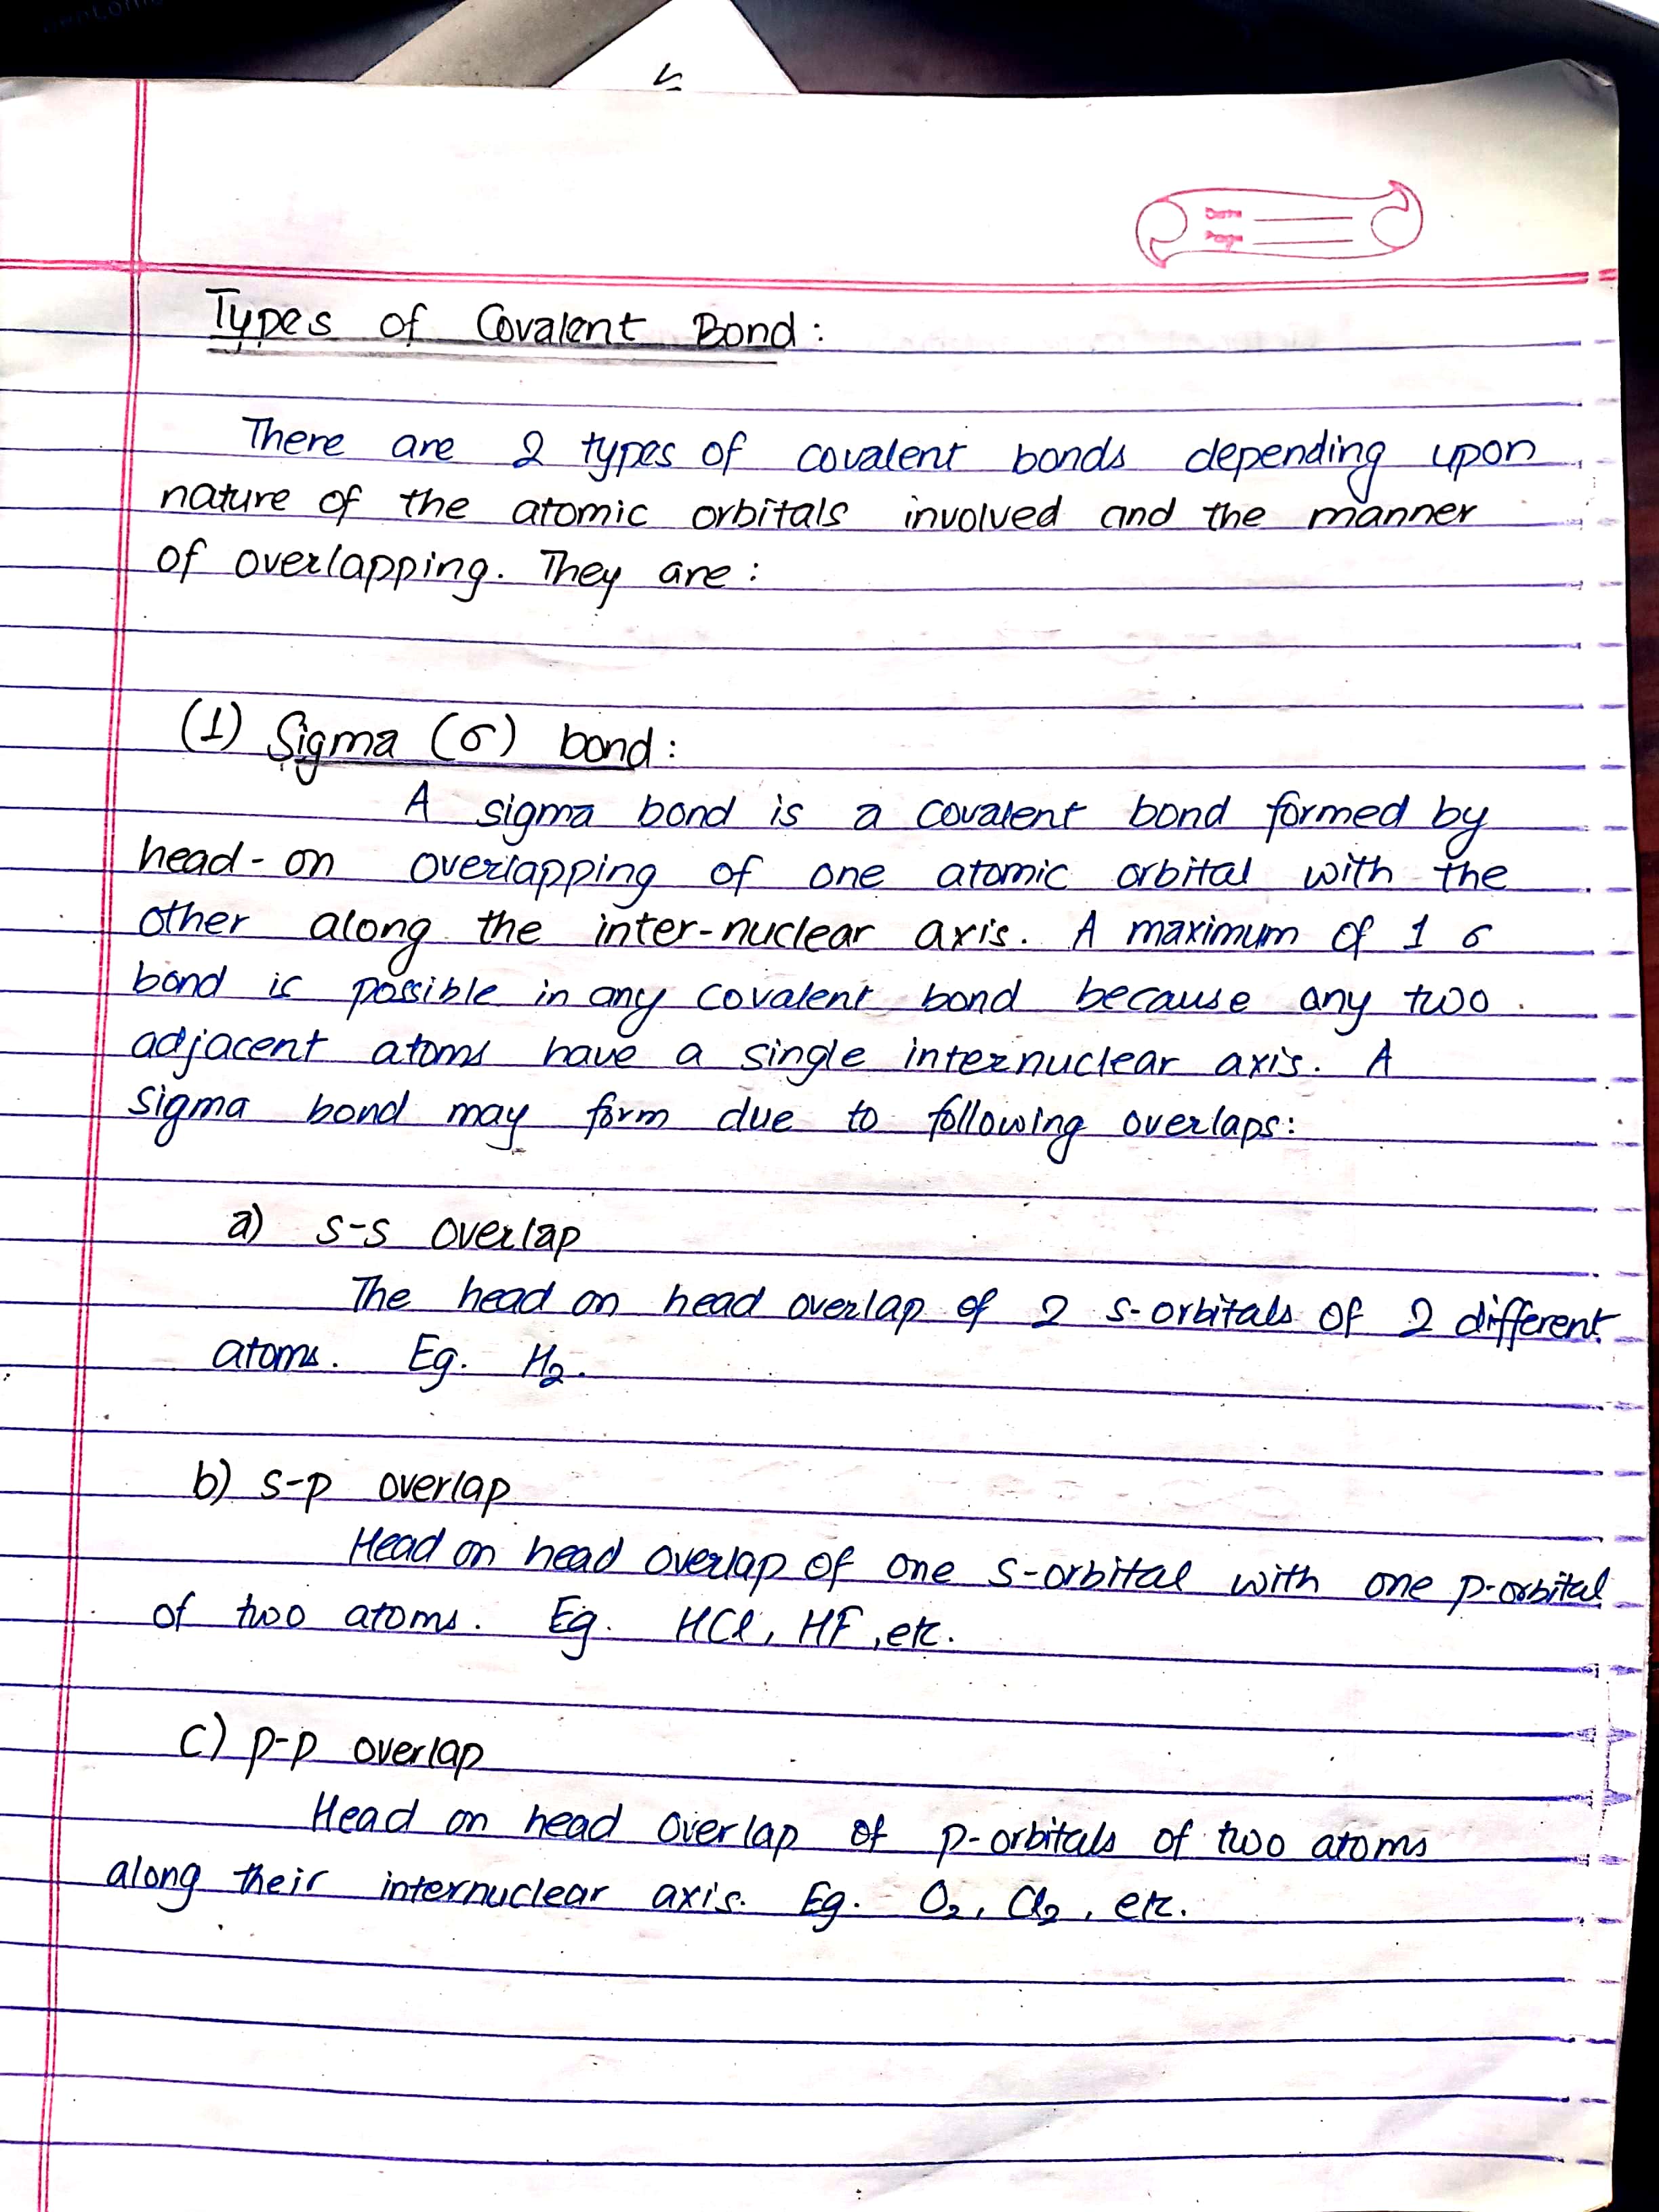 Date
Page
Types of Covalent Bond:
There are 2 types of covalent bonds depending upon
nature of the atomic orbitals involved and the manner
of overlapping. They are:
(1) Sigma (σ) bond:
A sigma bond is a covalent bond formed by
head-on overlapping of one atomic orbital with the
other along the inter-nuclear axis. A maximum of 1 σ
bond is possible in any covalent bond because any two
adjacent atoms have a single internuclear axis. A
sigma bond may form due to following overlaps:
a) s-s overlap
The head on head overlap of 2 s-orbitals of 2 different
atoms. Eg. H₂.
b) s-p overlap
Head on head overlap of one s-orbital with one p-orbital
of two atoms. Eg. HCl, HF, etc.
c) p-p overlap
Head on head overlap of p-orbitals of two atoms
along their internuclear axis. Eg. O₂, Cl₂, etc.